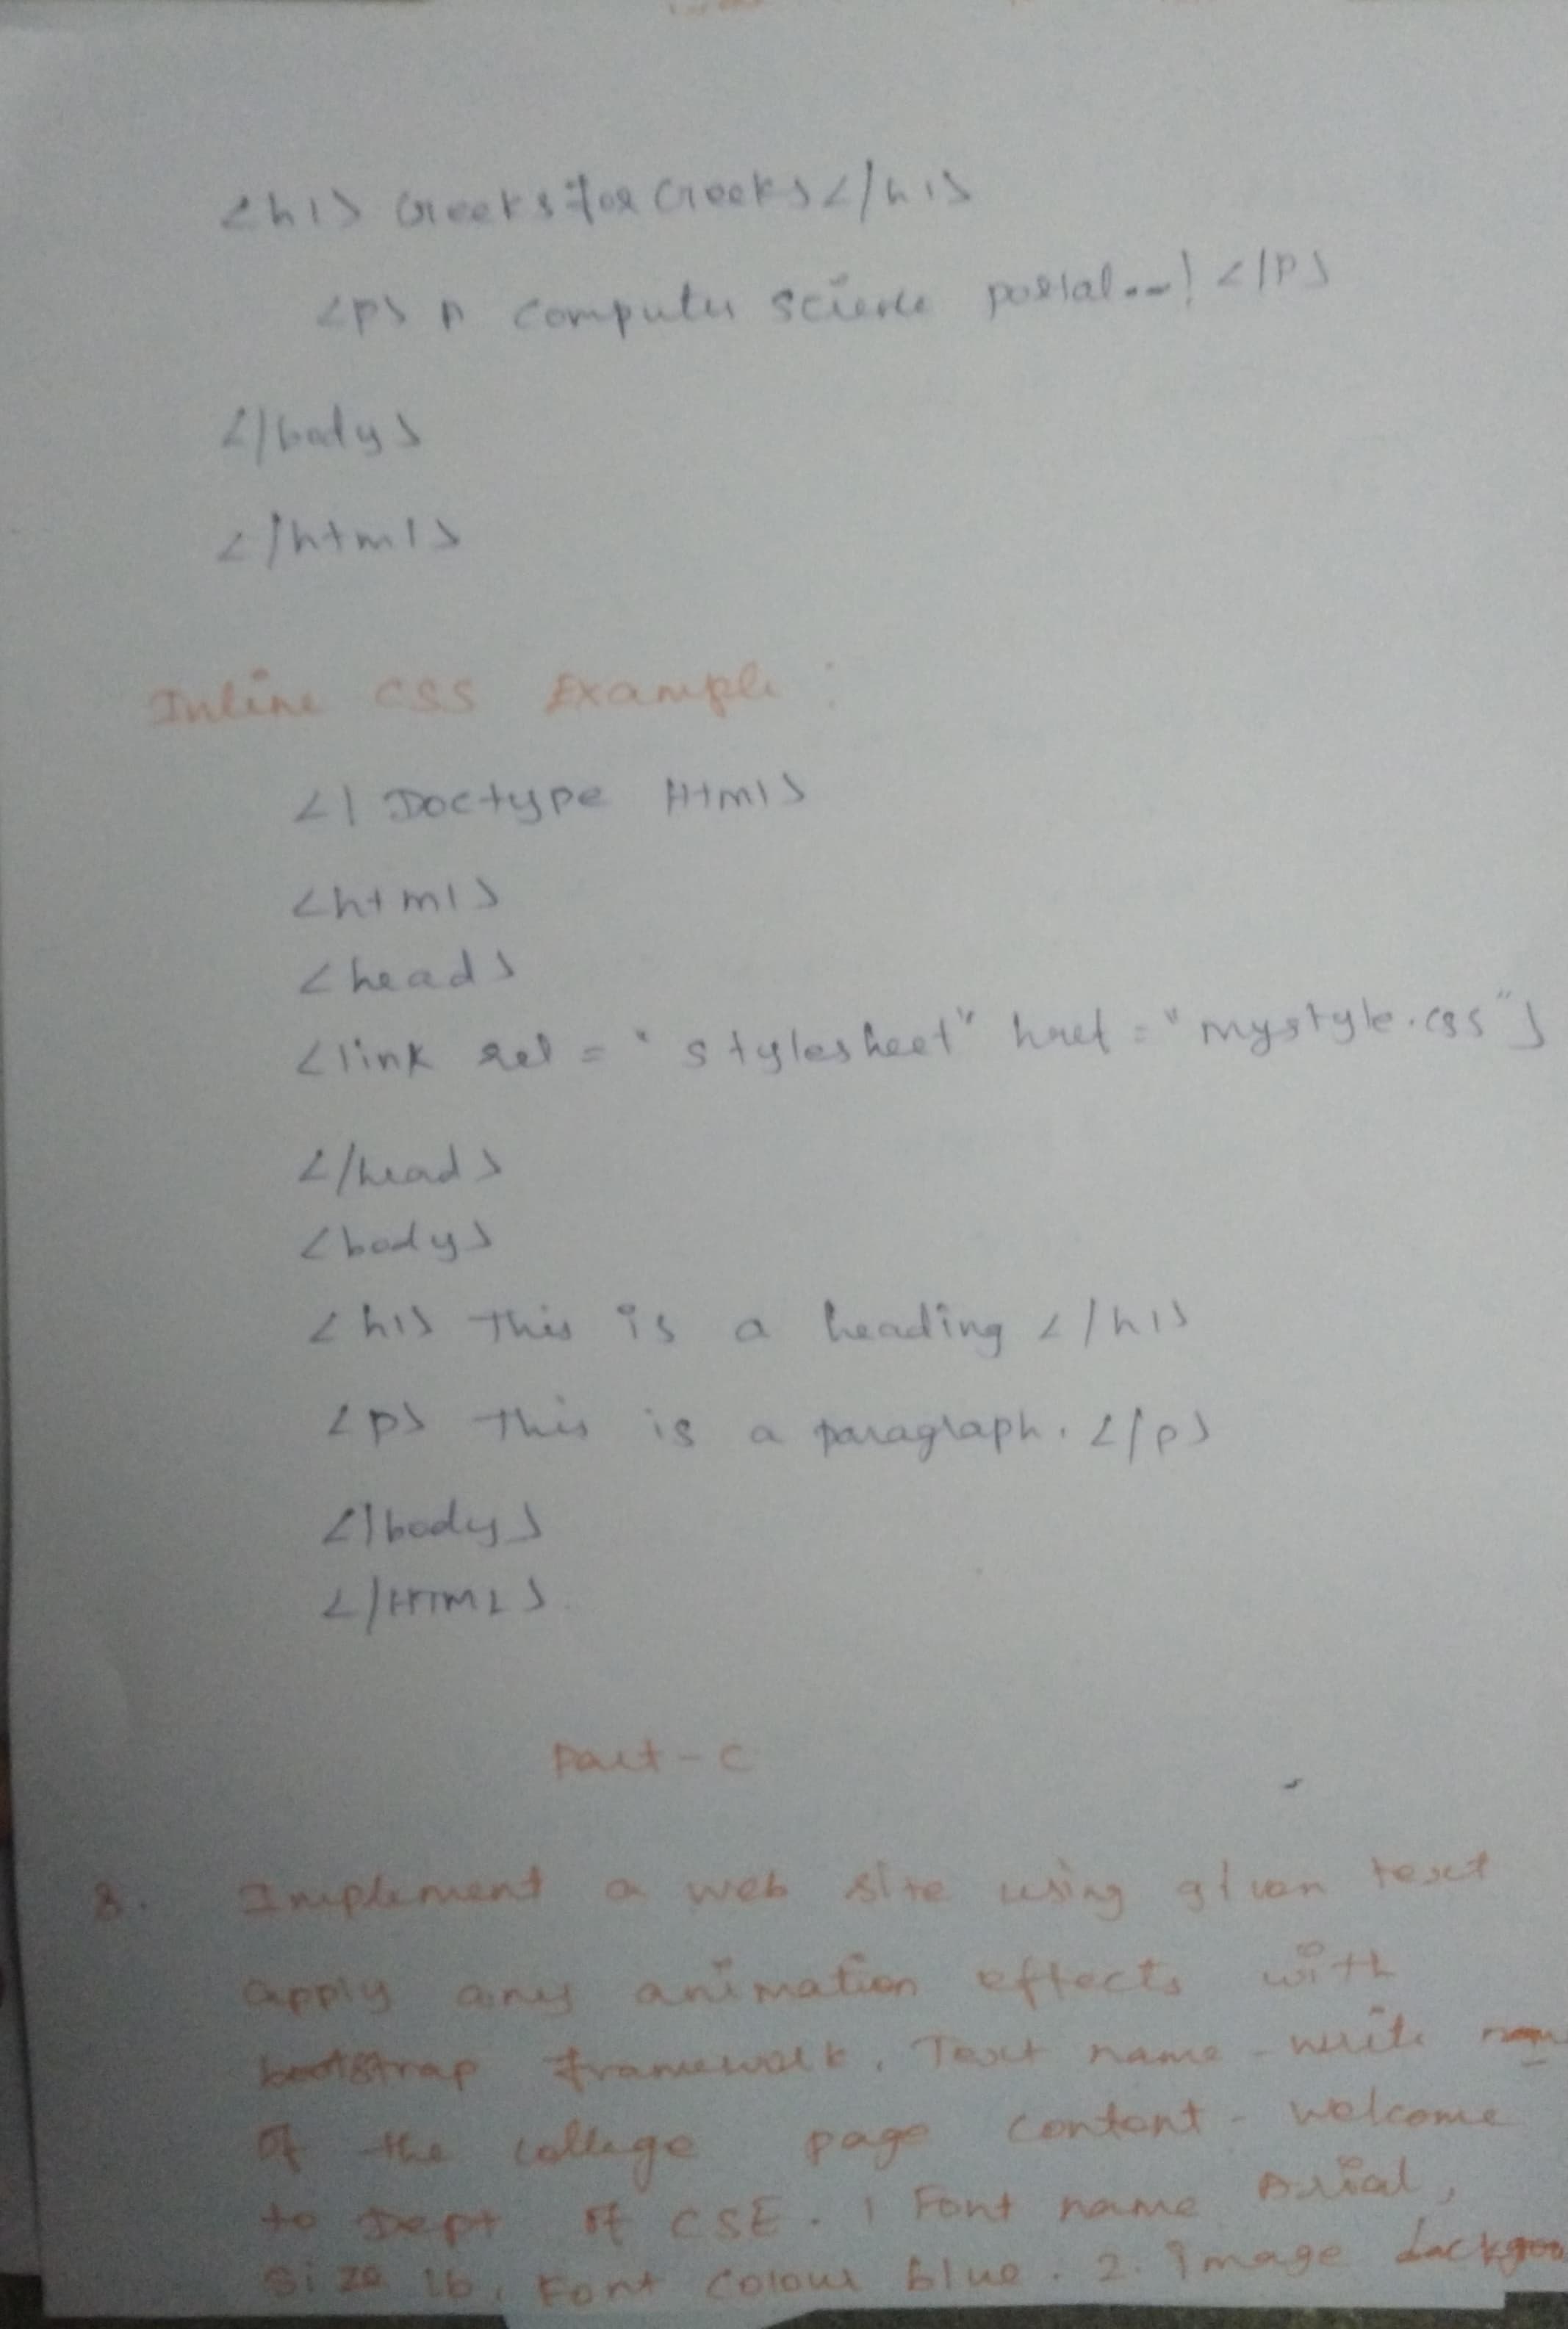 <h1> Geeks for Geeks </h1>
<p> A computer science portal..! </p>
</body>
</html>
Inline CSS Example :
<! Doctype Html>
<html>
<head>
<link rel = "stylesheet" href = "mystyle.css">
</head>
<body>
<h1> This is a heading </h1>
<p> This is a paragraph. </p>
</body>
</HTML>.
Part - C
8. Implement a web site using given text
apply any animation effects with
bootstrap framework. Text name - write
of the college page content - welcome
to Dept of CSE. 1 Font name Arial,
size 16, Font colour blue. 2. Image